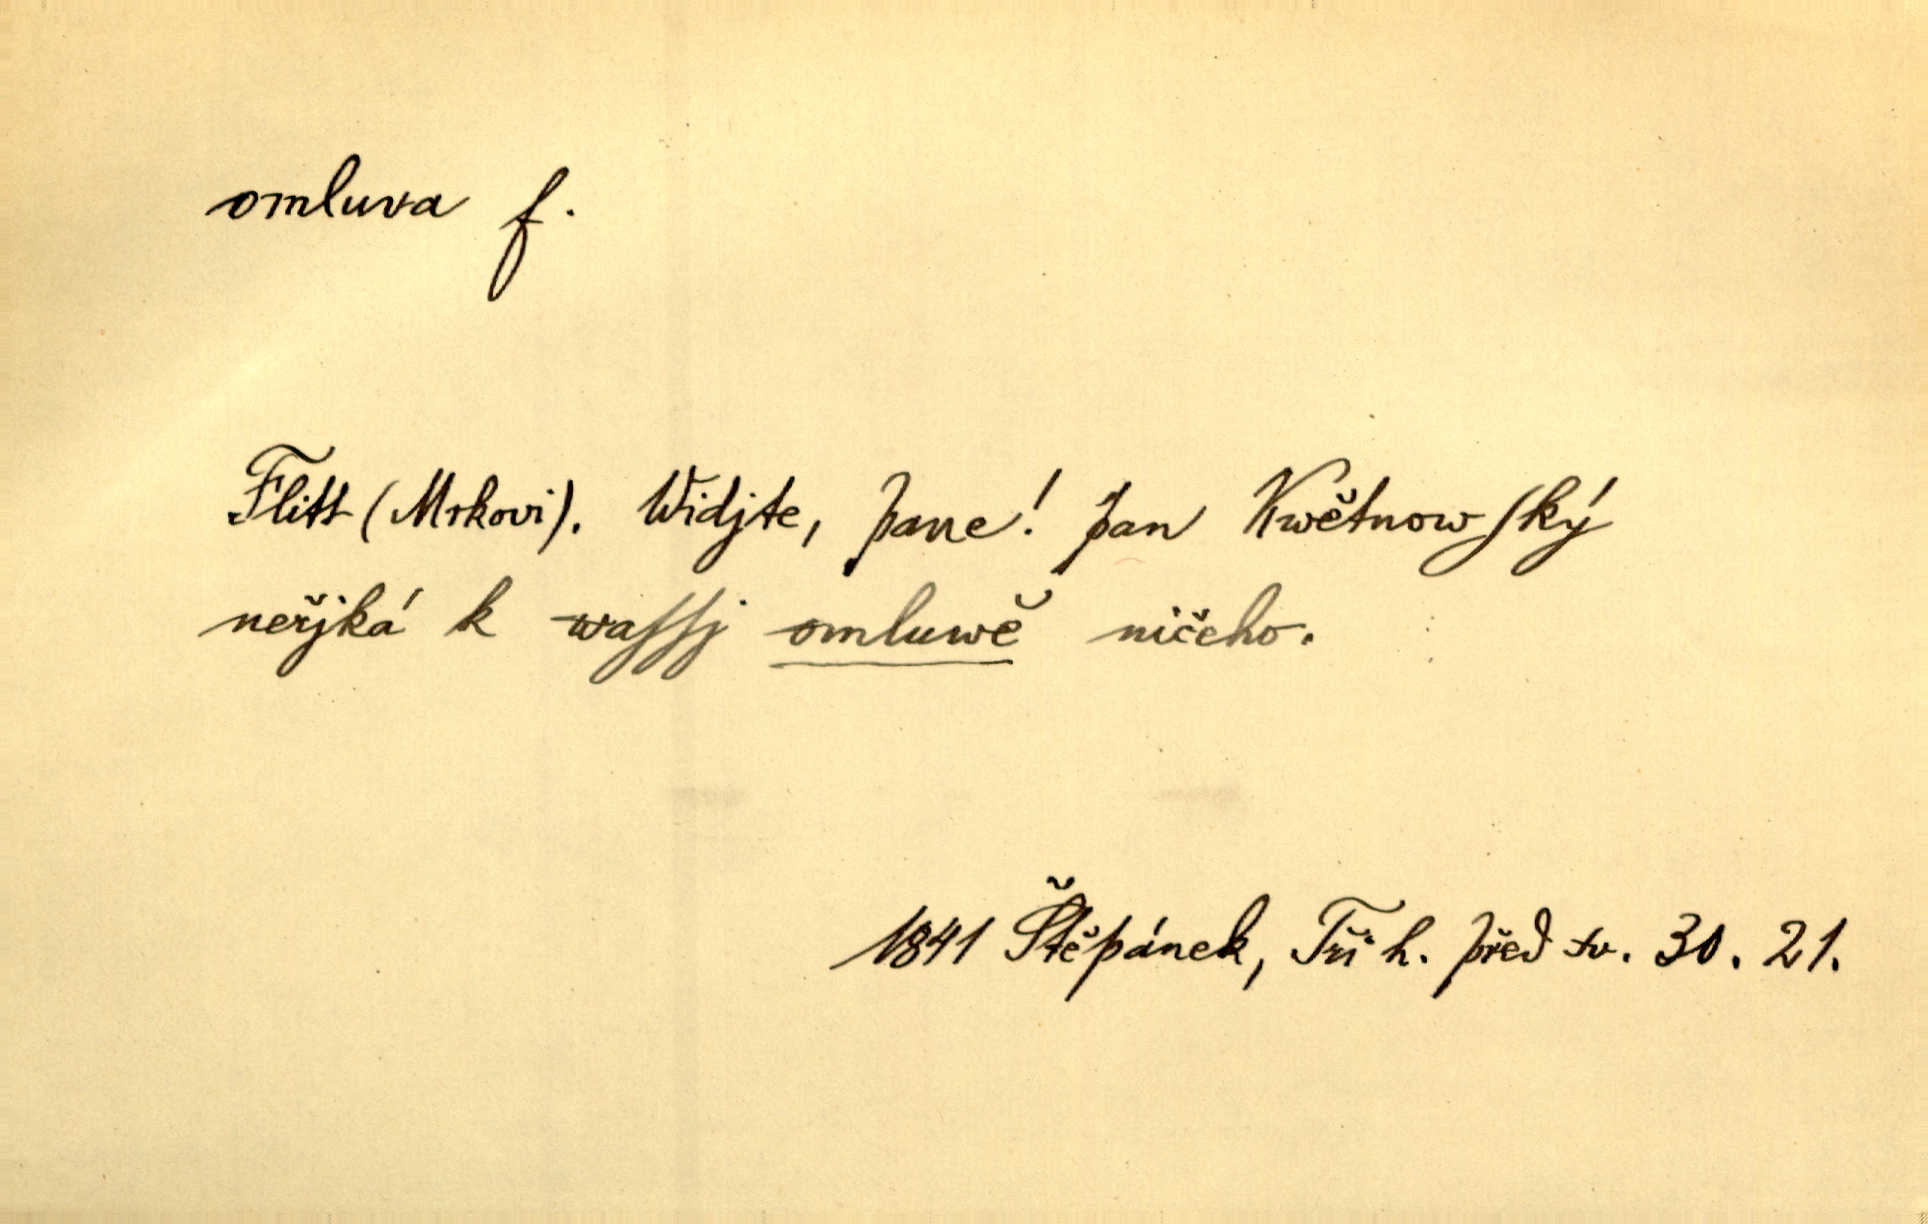 omluva f.
Flitt (Mrkovi). Widjte, pane! pan Kwětnowſký
neřjká k waſſj omluwě ničeho.
1841 Štěpánek, Tři h. před sv. 30. 21.